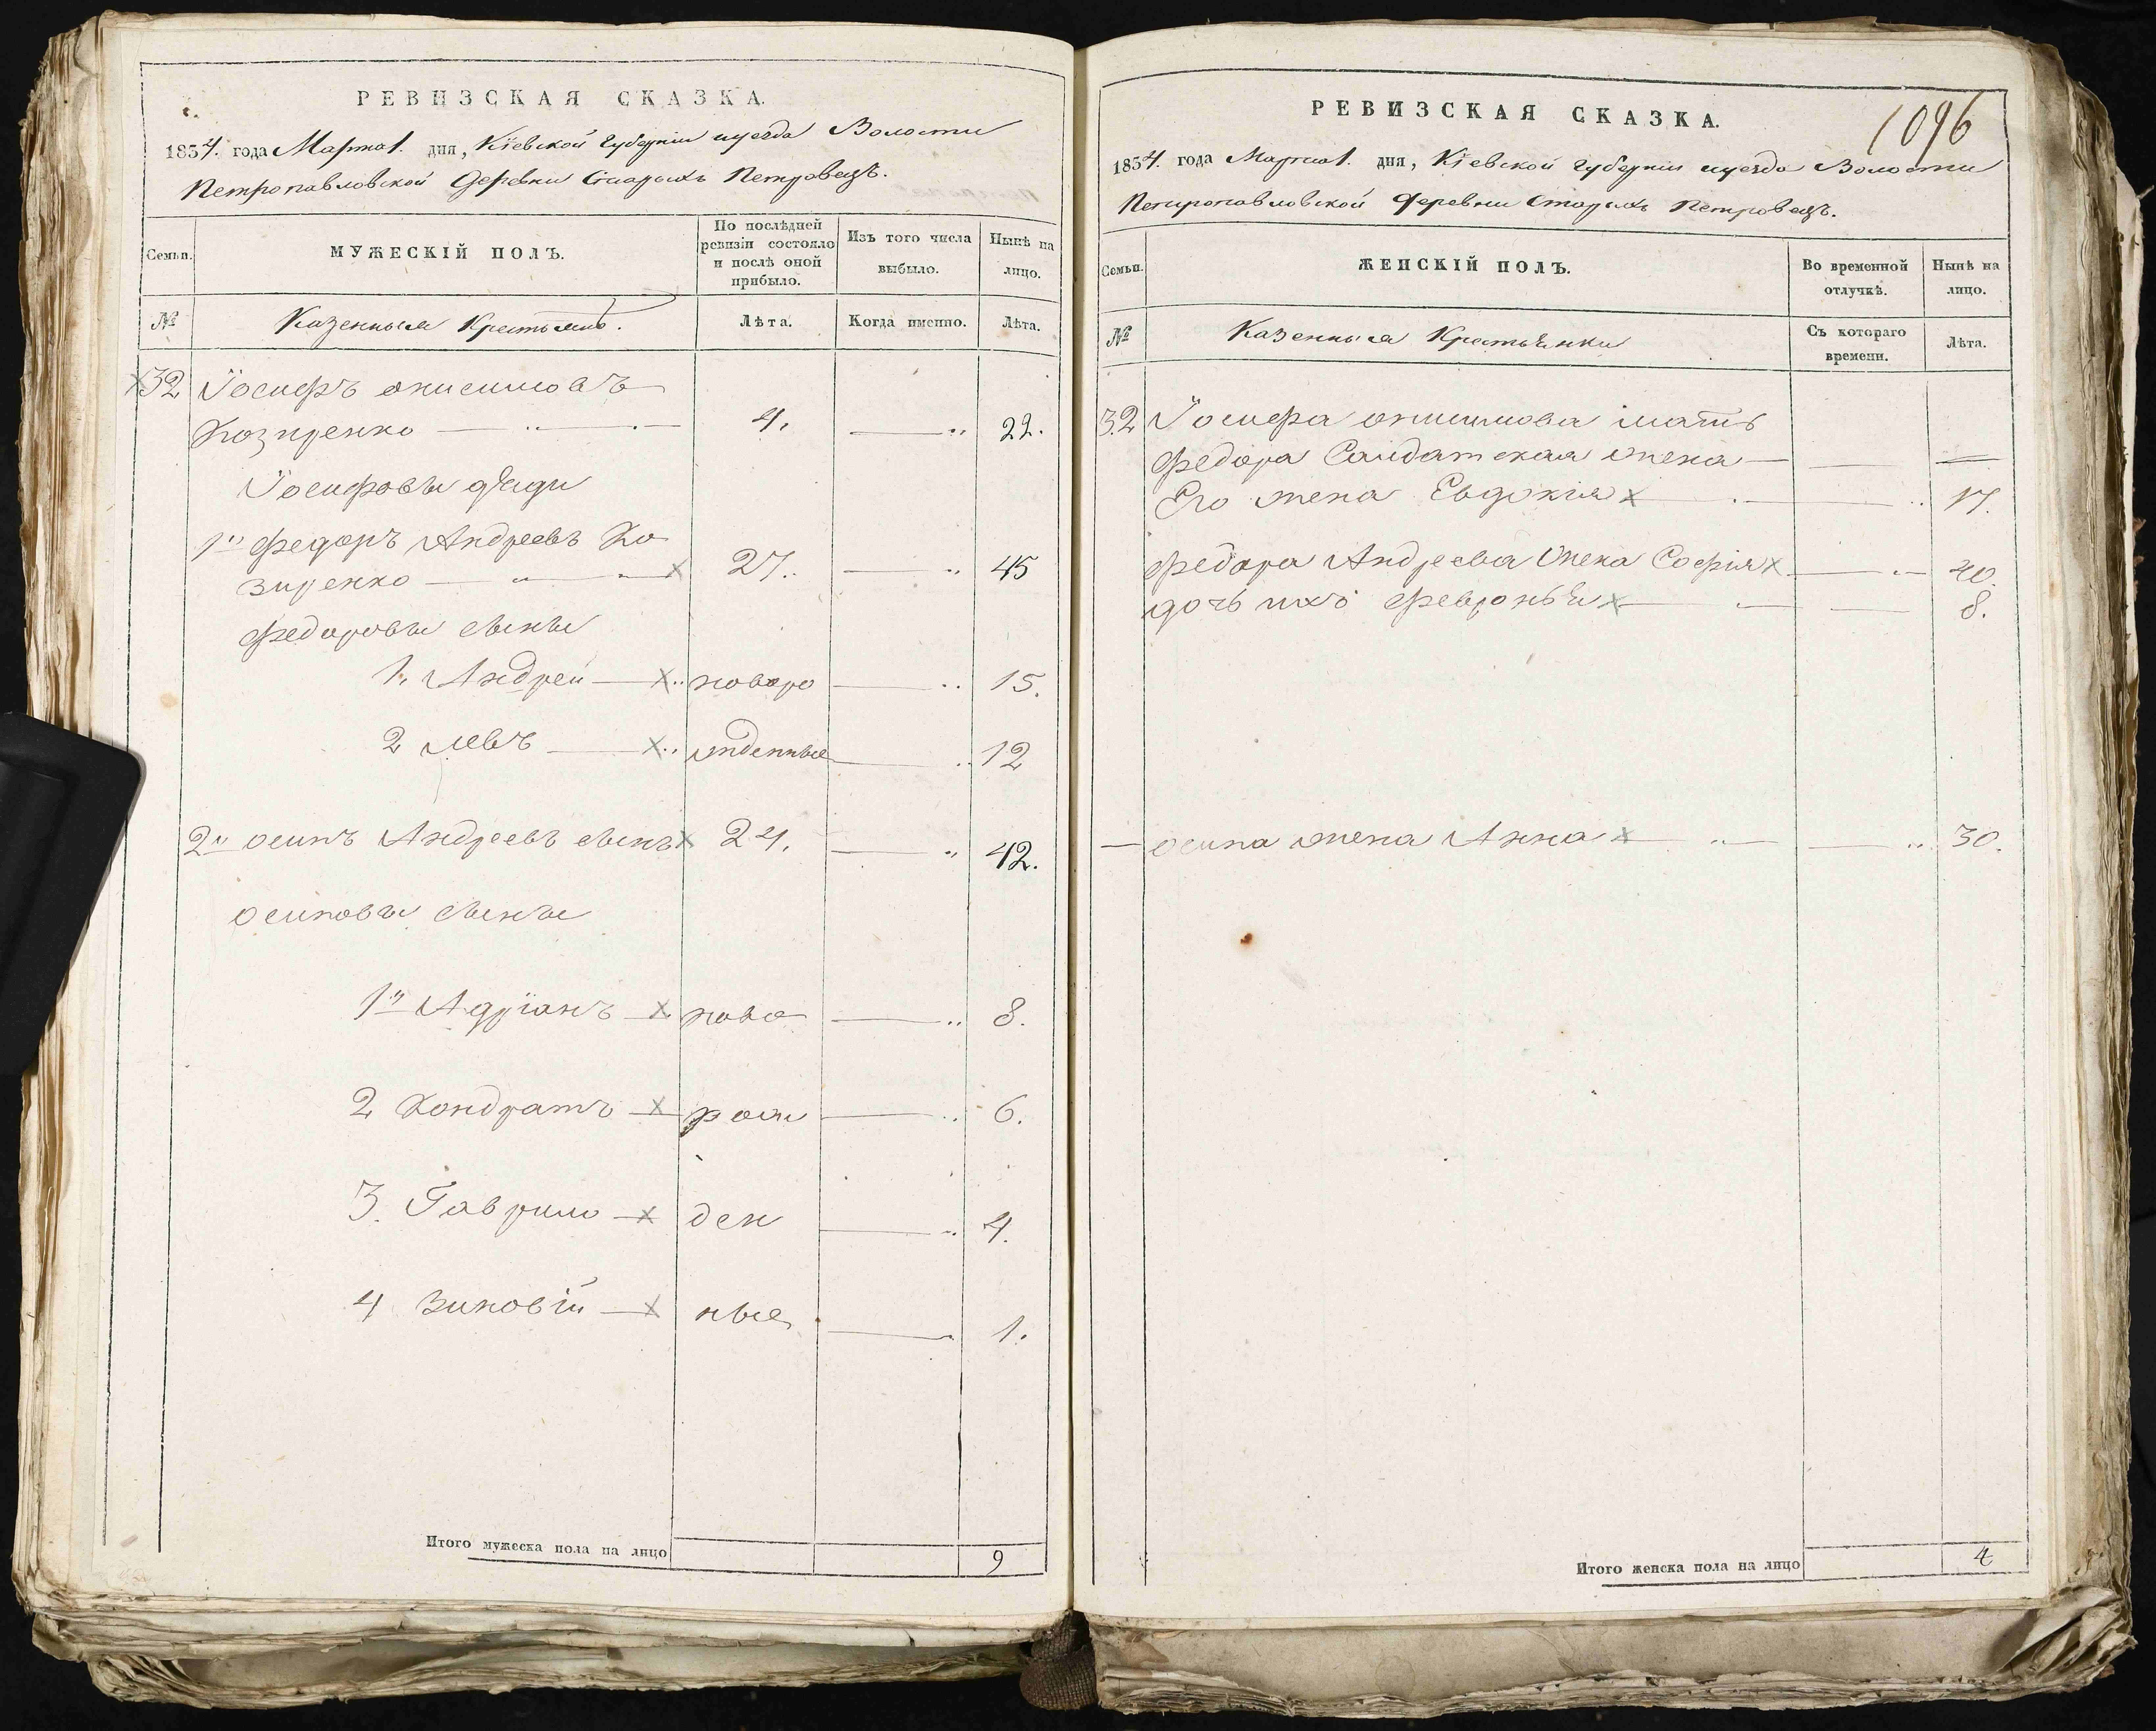 РЕВИЗСКАЯ СКАЗКА.
1854. года Марта 1. дня, Кіевской Губерніи и уезда Волости
Петропавловской Деревни Старыхъ Петровецъ.
Семьи.
МУЖЕСКІЙ ПОЛЪ.
По послѣдней ревизіи состояло и послѣ оной прибыло.
Изъ того числа выбыло.
Нынѣ на лицо.
№
Казенныя Крестьяне.
Лѣта.
Когда именно.
Лѣта.
32 Іосифъ онисимовъ
Козиренко 4. 22.
Іосифовы дяди
1й Федоръ Андреевъ Ко
зиренко 27. 45
Федоровы сыны
1. Андрей новоро 15.
2 левъ жденные 12
2й осипъ Андреевъ сынъ 24. 42.
осиповы сыны
1й Адріанъ ново 8.
2 Кондратъ рож 6.
3. Гаврило ден 4.
4 Зиновій ные 1.
Итого мужеска пола на лицо 9
1096
РЕВИЗСКАЯ СКАЗКА.
1854. года Марта 1. дня, Кіевской Губерніи и уезда Волости
Петропавловской Деревни Старыхъ Петровецъ.
Семьи.
ЖЕНСКІЙ ПОЛЪ.
Во временной отлучкѣ.
Нынѣ на лицо.
№
Казенныя Крестьянки
Съ котораго времени.
Лѣта.
32 Іосифа онисимова мать
Федора Салдатская жена
Его жена Евдокия 17.
Федора Андреева жена София 40.
дочь ихъ Февронья 8.
осипа жена Анна 30.
Итого женска пола на лицо 4